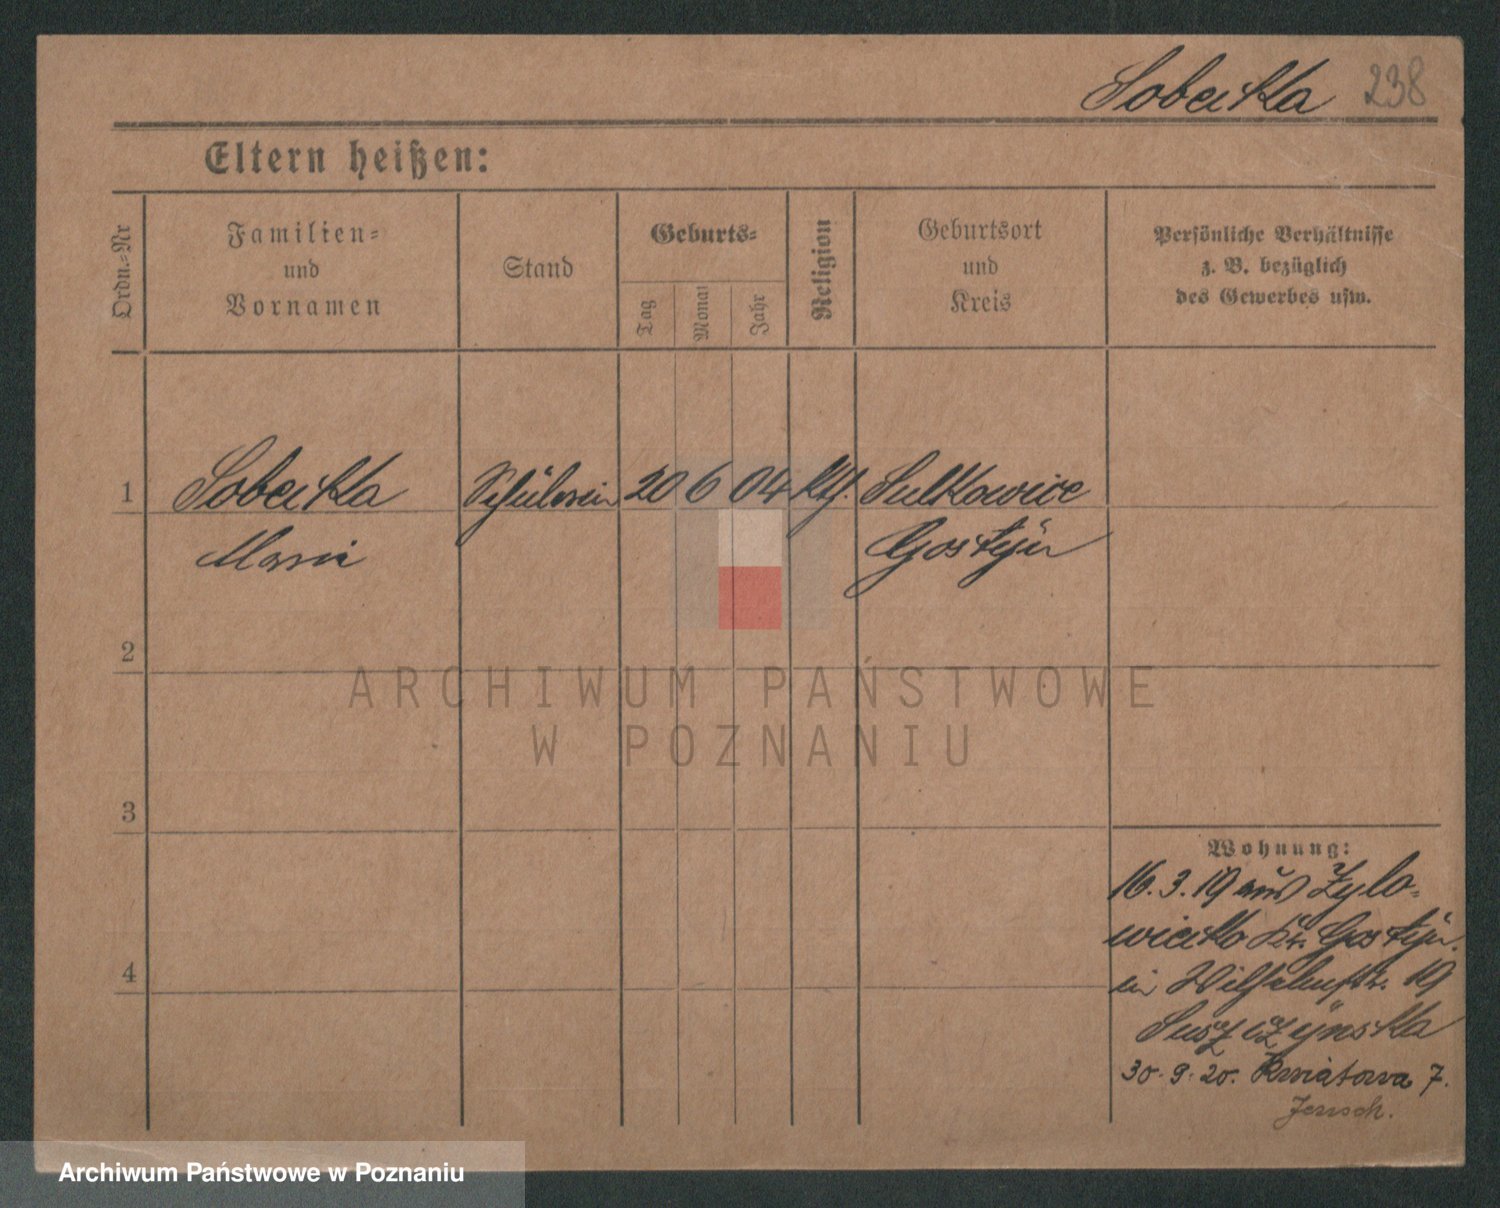 Sobecka 238
Eltern heißen:
Ordn.-Nr
Familien-
und
Vornamen
Stand
Geburts-
Tag
Monat
Jahr
Religion
Geburtsort
und
Kreis
Persönliche Verhältnisse
z. B. bezüglich
des Gewerbes usw.
1 Sobecka Schülerin 20 6 04 kth. Sulkowice
Maria Gostÿn
2
3
4
ARCHIWUM PAŃSTWOWE
W POZNANIU
Wohnung:
16.3.19 aus Zylo-
wiecko Kr. Gostÿn.
in Wilhelmstr. 19
Suszczÿnska
30.9.20. Kwiatowa 7.
Archiwum Państwowe w Poznaniu